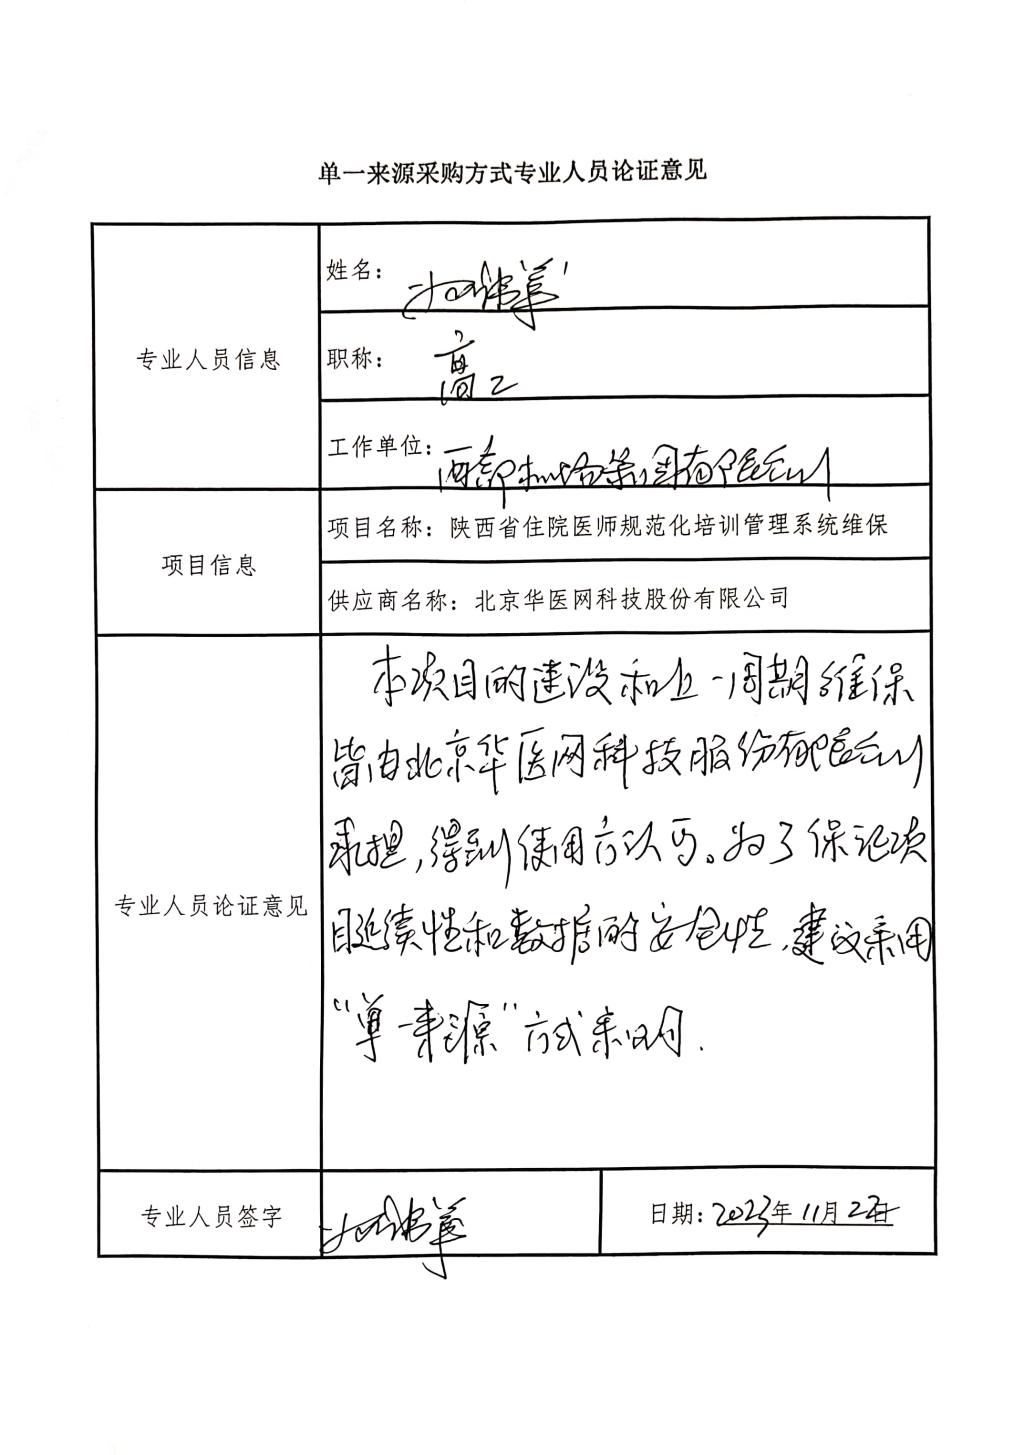 单一来源采购方式专业人员论证意见
专业人员信息
姓名：
职称：高工
工作单位：西部机场集团有限公司
项目信息
项目名称：陕西省住院医师规范化培训管理系统维保
供应商名称：北京华医网科技股份有限公司
专业人员论证意见
本项目的建设和上一周期维保
皆由北京华医网科技股份有限公司
承担，得到使用方认可。为了保证项
目延续性和数据的安全性，建议采用
“单一来源”方式采购.
专业人员签字
日期：2023年11月22日